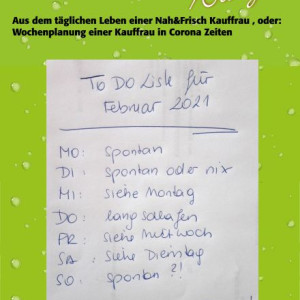 Aus dem täglichen Leben einer Nah&Frisch Kauffrau , oder:
Wochenplanung einer Kauffrau in Corona Zeiten
To Do Liste für
Februar 2021
MO: spontan
DI: spontan oder nix
MI: siehe Montag
DO: lang schlafen
FR: siehe Mittwoch
SA: siehe Dienstag
SO: spontan ?!